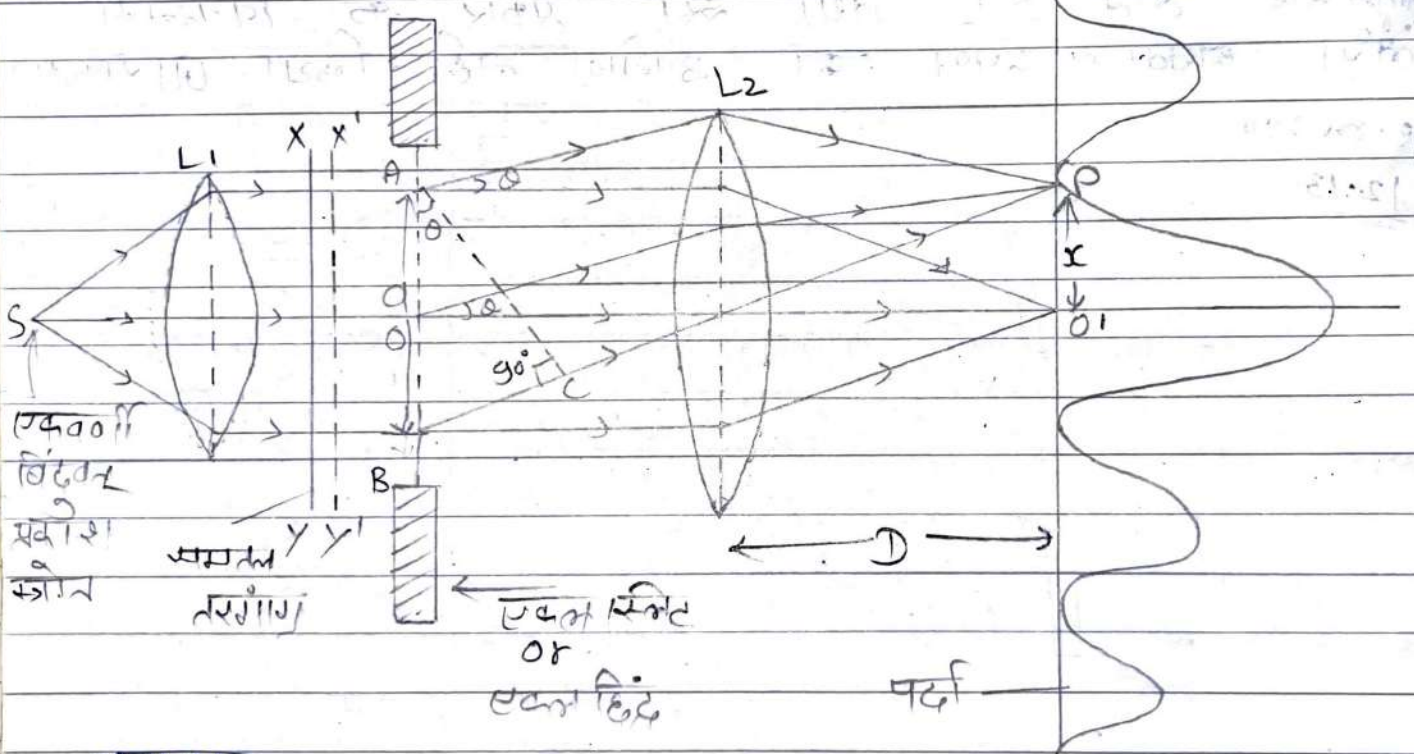 L2
X X'
L1
A
θ
P
θ
x
S
O
θ
O'
90°
C
एकवर्णी
बिंदुवत
प्रकाश
स्त्रोत
B
Y Y'
समतल
तरंगाग्र
D
एकल स्लिट
or
एकल छिद्र
पर्दा